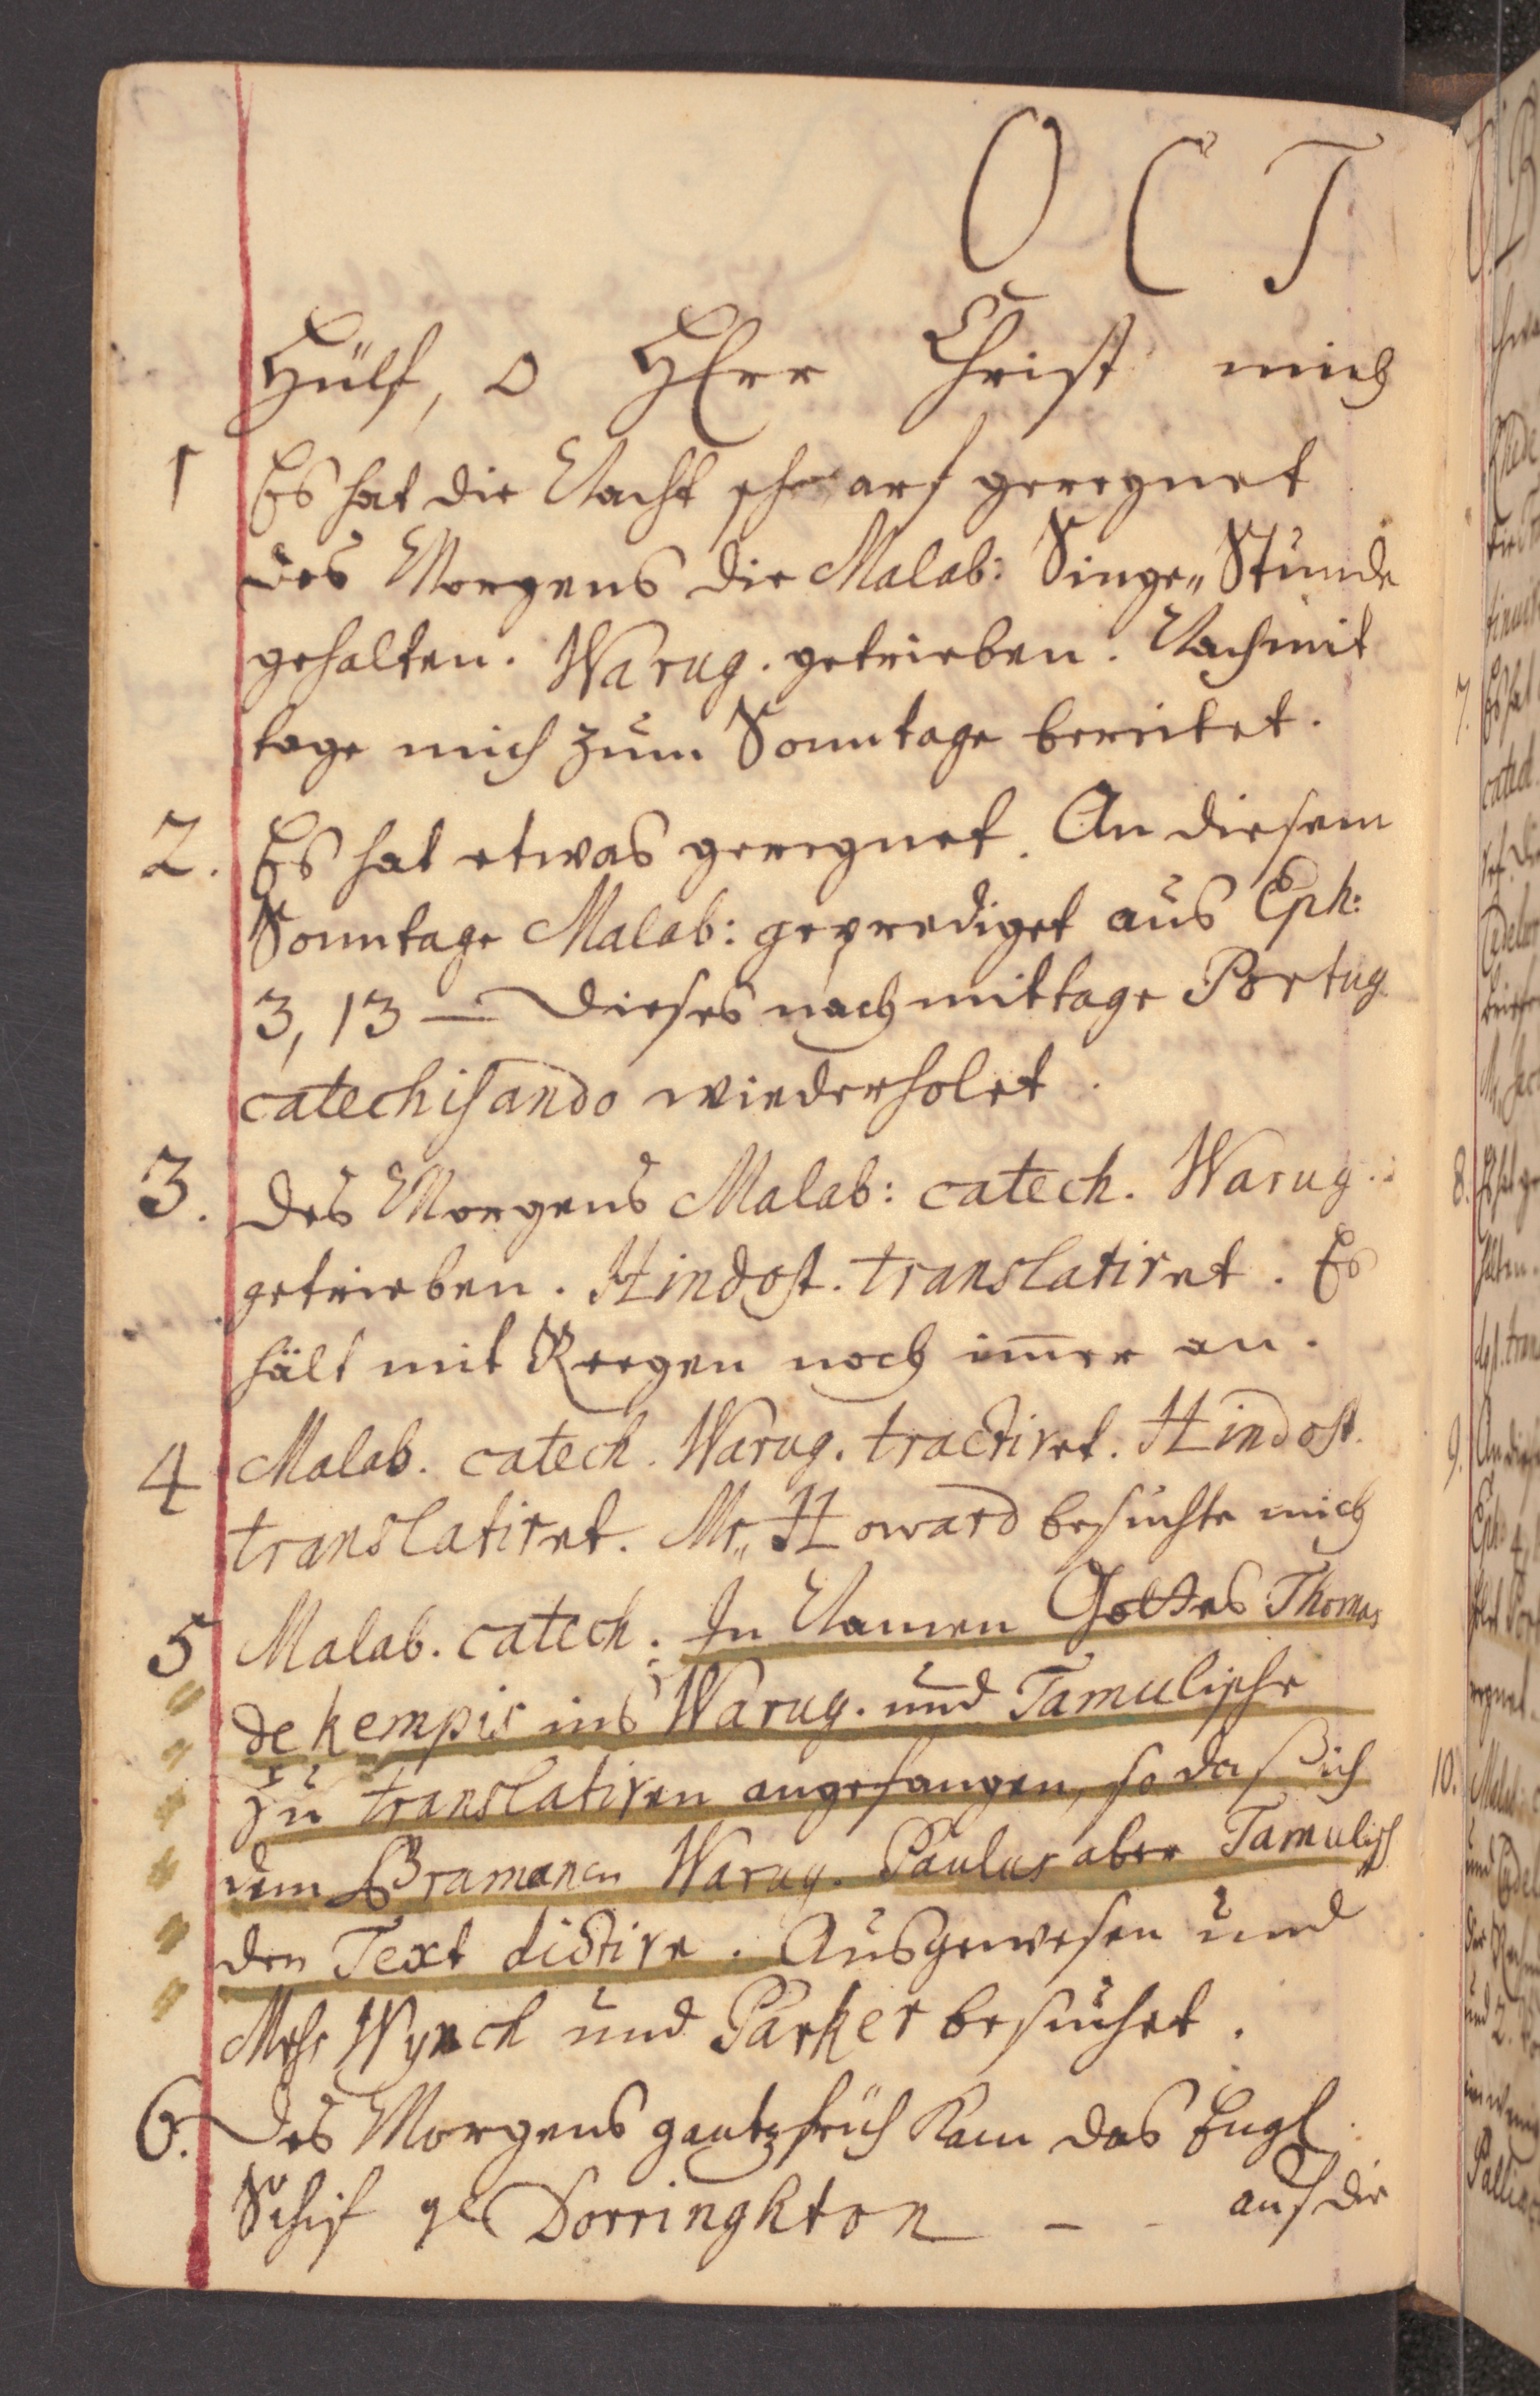 OCT
Hülf, o HErr Christ mich
1 Es hat die Nacht scharf geregnet
des Morgens die Malab: Singe„Stunde
gehalten. Warug. getrieben. Nachmit
tage mich zum Sonntage bereitet.
2. Es hat etwas geregnet. An diesem
Sonntage Malab: geprediget aus Eph:
3, 13 — Dieses nachmittage Portug
catechisando wiederholet.
3. Des Morgens Malab: catech. Warug.
getrieben. Hindost. translatiret. Es
hält mit Reegen noch im̄er an.
4 Malab. catech. Warug. tractiret. Hindost.
translatiret. Mr„ Howard besuchte mich
5 Malab. catech: In Namen Gottes Thomas
de kempis ins Warug. und Tamulische
zu translatiren angefangen, so daß ich
dem Bramanen Warug. Paulus aber Tamulisch
den Text dictire. Ausgewesen und
Wynch und Parker besuchet.
6. Des Morgens gantz früh kam das Engl.
Schif Dorringhton – - auf die